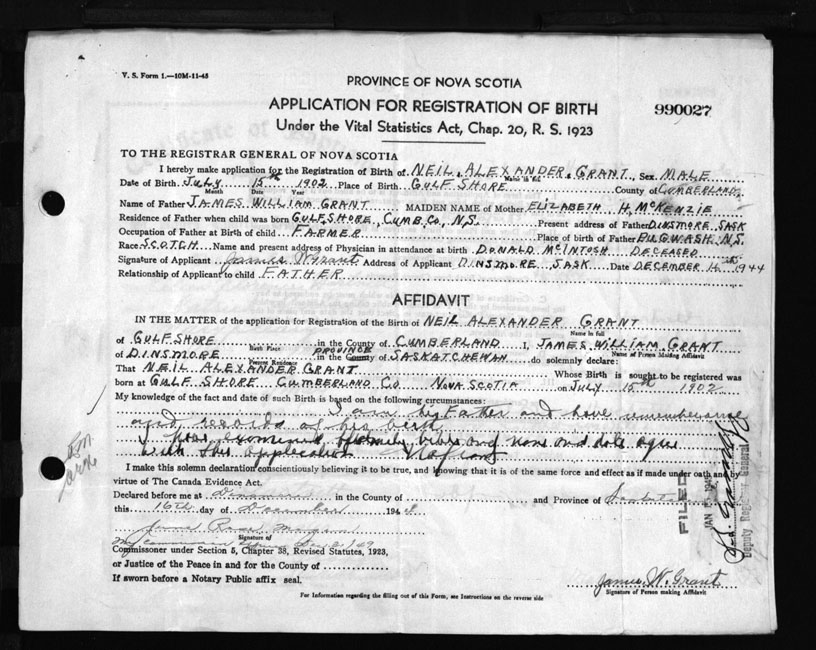 V. S. Form 1.—10M-11-45
PROVINCE OF NOVA SCOTIA
APPLICATION FOR REGISTRATION OF BIRTH
990027
Under the Vital Statistics Act, Chap. 20, R. S. 1923
TO THE REGISTRAR GENERAL OF NOVA SCOTIA
I hereby make application for the Registration of Birth of NEIL ALEXANDER GRANT, Sex MALE
Name in full
Date of Birth JULY 15th 1902 Place of Birth GULF SHORE County of CUMBERLAND
Month Date Year
Name of Father JAMES WILLIAM GRANT MAIDEN NAME of Mother ELIZABETH H. McKENZIE
Residence of Father when child was born GULF SHORE, CUMB. CO., N.S. Present address of Father DINSMORE SASK
Occupation of Father at Birth of child FARMER Place of birth of Father PUGWASH, N.S.
Race SCOTCH Name and present address of Physician in attendance at birth DONALD McINTOSH DECEASED
Signature of Applicant James W Grant Address of Applicant DINSMORE SASK Date DECEMBER 1944
Relationship of Applicant to child FATHER
AFFIDAVIT
IN THE MATTER of the application for Registration of the Birth of NEIL ALEXANDER GRANT
Name in full
of GULF SHORE in the County of CUMBERLAND I, JAMES WILLIAM GRANT
Birth Place PROVINCE Name of Person Making Affidavit
of DINSMORE in the County of SASKATCHEWAN do solemnly declare:
Present Residence
That NEIL ALEXANDER GRANT Whose Birth is sought to be registered was
born at GULF SHORE CUMBERLAND CO NOVA SCOTIA on JULY 15th 1902
My knowledge of the fact and date of such Birth is based on the following circumstances:
I am his Father and have remembrance
and records of his birth
I have examined family bible and name and date agree
with this application
I make this solemn declaration conscientiously believing it to be true, and knowing that it is of the same force and effect as if made under oath and by
virtue of The Canada Evidence Act.
Declared before me at Dinsmore in the County of and Province of
this 16th day of December 194
James Ross
My commission Dec 31/49
Signature of
Commissioner under Section 5, Chapter 38, Revised Statutes, 1923,
or Justice of the Peace in and for the County of
If sworn before a Notary Public affix seal.
James W. Grant
Signature of Person making Affidavit
For Information regarding the filling out of this Form, see Instructions on the reverse side
FILED
JAN
Deputy Registrar General